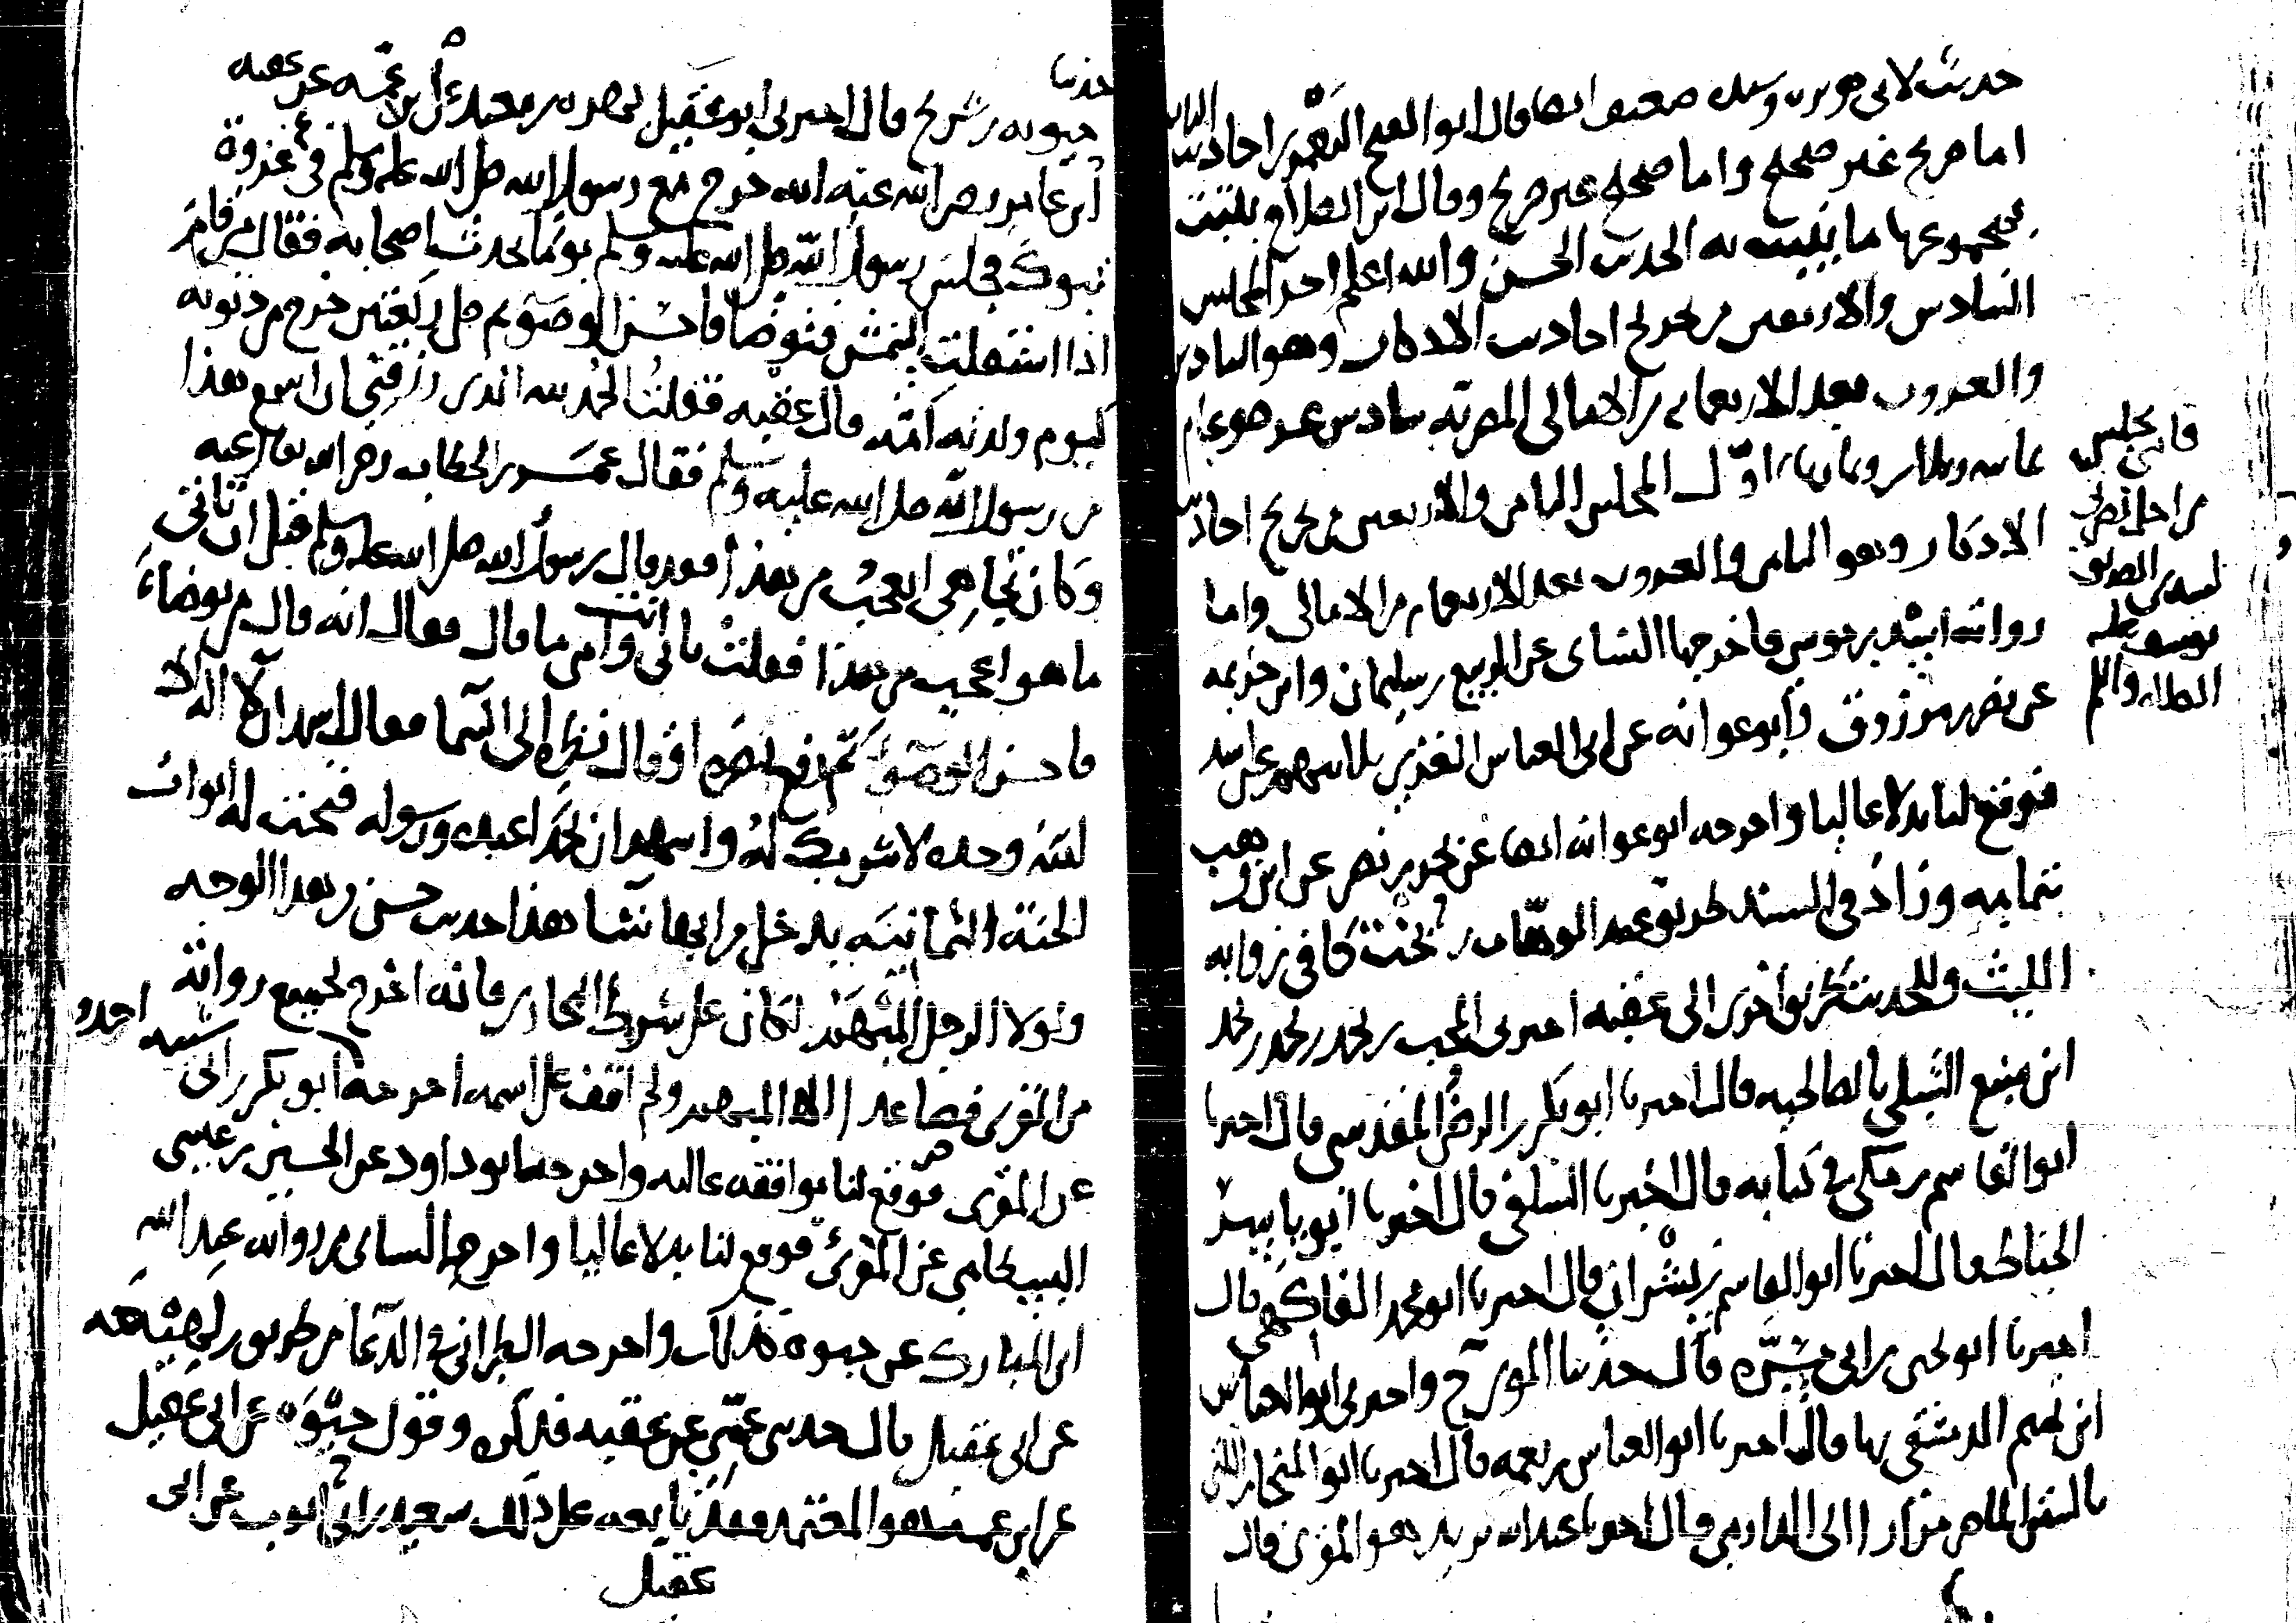 حديث لابى هريره وسنده ضعيف ايضا قال ابو الفتح اليعمرى احاديث الباب
اما صريح غير صحيح واما صحيح غير صريح وقال ابن الصلاح يثبت
بمجموعها ما يثبت به الحديث الحسن والله اعلم اخر المجلس
السادس والاربعين من تخريج احاديث الاذكار وهو السادس
والعشرون بعد الاربعمايه من الامالى المصرية سادس عشر
اول المجلس الثامن والاربعين من تخريج احاديث
الاذكار وهو الثامن والعشرون بعد الاربعمايه من الامالى واما
رواية اسد بن موسى فاخرجها النساى عن الربيع بن سليمان وابن خزيمه
عن نصر بن مرزوق وابو عوانه عن ابى العباس الغزى ثلاثتهم عن اسد
فوقع لنا بدلا عاليا واخرجه ابو عوانه ايضا عن بحر بن نصر عن ابن وهب
بتمامه وزاد فى السند طريق عبد الوهاب بن بخت كما فى رواية
الليث وللحديث طريق اخرى الى عقبه اخبرنى المحب بن محمد بن محمد بن محمد
ابن منيع السبلى بالصالحيه قال اخبرنا ابو بكر بن الرضى المقدسى قال اخبرنا
ابو القاسم بن مكى فى كتابه قال اخبرنا السلفى قال اخبرنا ابو ياسر
الخياط قال اخبرنا ابو القاسم بن بشران قال اخبرنا ابو محمد الفاكهى قال
اخبرنا ابو يحيى بن ابى مسره قال حدثنا المقرئ ح واخبرنى ابو العباس
ابن تميم الدمشقى بها قال اخبرنا ابو العباس بن نعمه قال اخبرنا ابو المنجا بن اللتى
بالسند الماضى مرارا الى الدارمى قال اخبرنا عبد الله بن يزيد هو المقرئ قال
فاتنى مجلس
من اجل
والله
حدثنا
حيوة بن شريح قال اخبرنى ابو عقيل زهره بن معبد عن ابن عمه عن عقبه
ابن عامر رضى الله عنه انه خرج مع رسول الله صلى الله عليه وسلم فى غزوة
تبوك فجلس رسول الله صلى الله عليه وسلم يوما يحدث اصحابه فقال من قام
اذا استقلت الشمس فتوضأ فاحسن الوضوء ثم صلى ركعتين خرج من ذنوبه
كيوم ولدته امه قال عقبه فقلت الحمد لله الذى رزقنى ان اسمع هذا
من رسول الله صلى الله عليه وسلم فقال عمر بن الخطاب رضى الله تعالى عنه
وكان تجاهى اتعجب من هذا فقد قال رسول الله صلى الله عليه وسلم قبل ان تاتى
ما هو اعجب من هذا فقلت بابى انت وامى ما قال فقال انه قال من توضا
فاحسن الوضوء ثم رفع بصره او قال نظره الى السما فقال اشهد ان لا اله الا
الله وحده لا شريك له واشهد ان محمدا عبده ورسوله فتحت له ابواب
الجنة الثمانيه يدخل من ايها شا هذا حديث حسن من هذا الوجه
ولولا الرجل المبهم لكان على شرط البخارى فانه اخرج لجميع رواته
من المقرى فصاعدا الا المبهم ولم اقف على اسمه اخرجه احمد وابو بكر بن ابى شيبه
عن المقرى فوقع لنا موافقه عاليه واخرجه ابو داود عن الحسين بن عيسى
البسطامى عن المقرئ فوقع لنا بدلا عاليا واخرجه النساى من رواية عبد الله
ابن المبارك عن حيوة كذلك واخرجه الطبرانى فى الدعا من طريق ابن لهيعه
عن ابى عقيل قال حدثنى عمى عن عقبه فذكره وقول حيوة عن ابى عقيل
عن ابن عمه هو المعتمد فقد تابعه على ذلك سعيد بن ابى ايوب عن ابى
عقيل